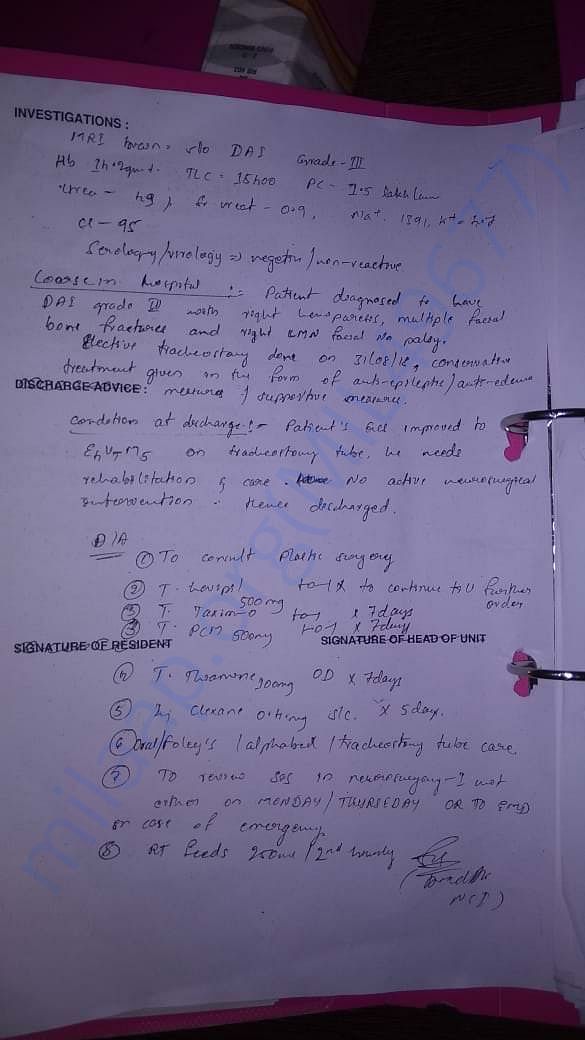 INVESTIGATIONS :
MRI brain = s/o DAI Grade - III
Hb 14.2gm%. TLC = 15400 PC - 1.5 lakh
Urea - 49, Sr creat - 0.9, Na+. 139, K+
Cl - 95
Serology/virology => negative/non-reactive
Course in hospital :- Patient diagnosed to have
DAI grade III with right hemiparesis, multiple facial
bone fractures and right LMN facial palsy.
Elective tracheostomy done on 31/08/18, conservative
treatment given in the form of anti-epileptic/anti-edema
DISCHARGE ADVICE : measures / supportive measures.
Condition at discharge :- Patient's GCS improved to
E4VTM5 on tracheostomy tube, he needs
rehabilitation & care. No active neurosurgical
intervention. Hence discharged.
D/A
① To consult plastic surgery
② T. Levipil 500mg 1-0-1 x to continue till further order
③ T. Taxim-O 1-0-1 x 7days
③ T. PCM 500mg 1-0-1 x 7days
SIGNATURE OF RESIDENT SIGNATURE OF HEAD OF UNIT
④ T. Thiamine 100mg OD x 7days
⑤ Inj Clexane 0.4mg s/c. x 5days.
⑥ Oral/Foley's /alphabed /tracheostomy tube care
⑦ To review SOS in neurosurgery-I
either on MONDAY/THURSDAY OR TO EMD
in case of emergency
⑧ RT feeds 200ml/2nd hourly
milaap.org(MIL 9677)